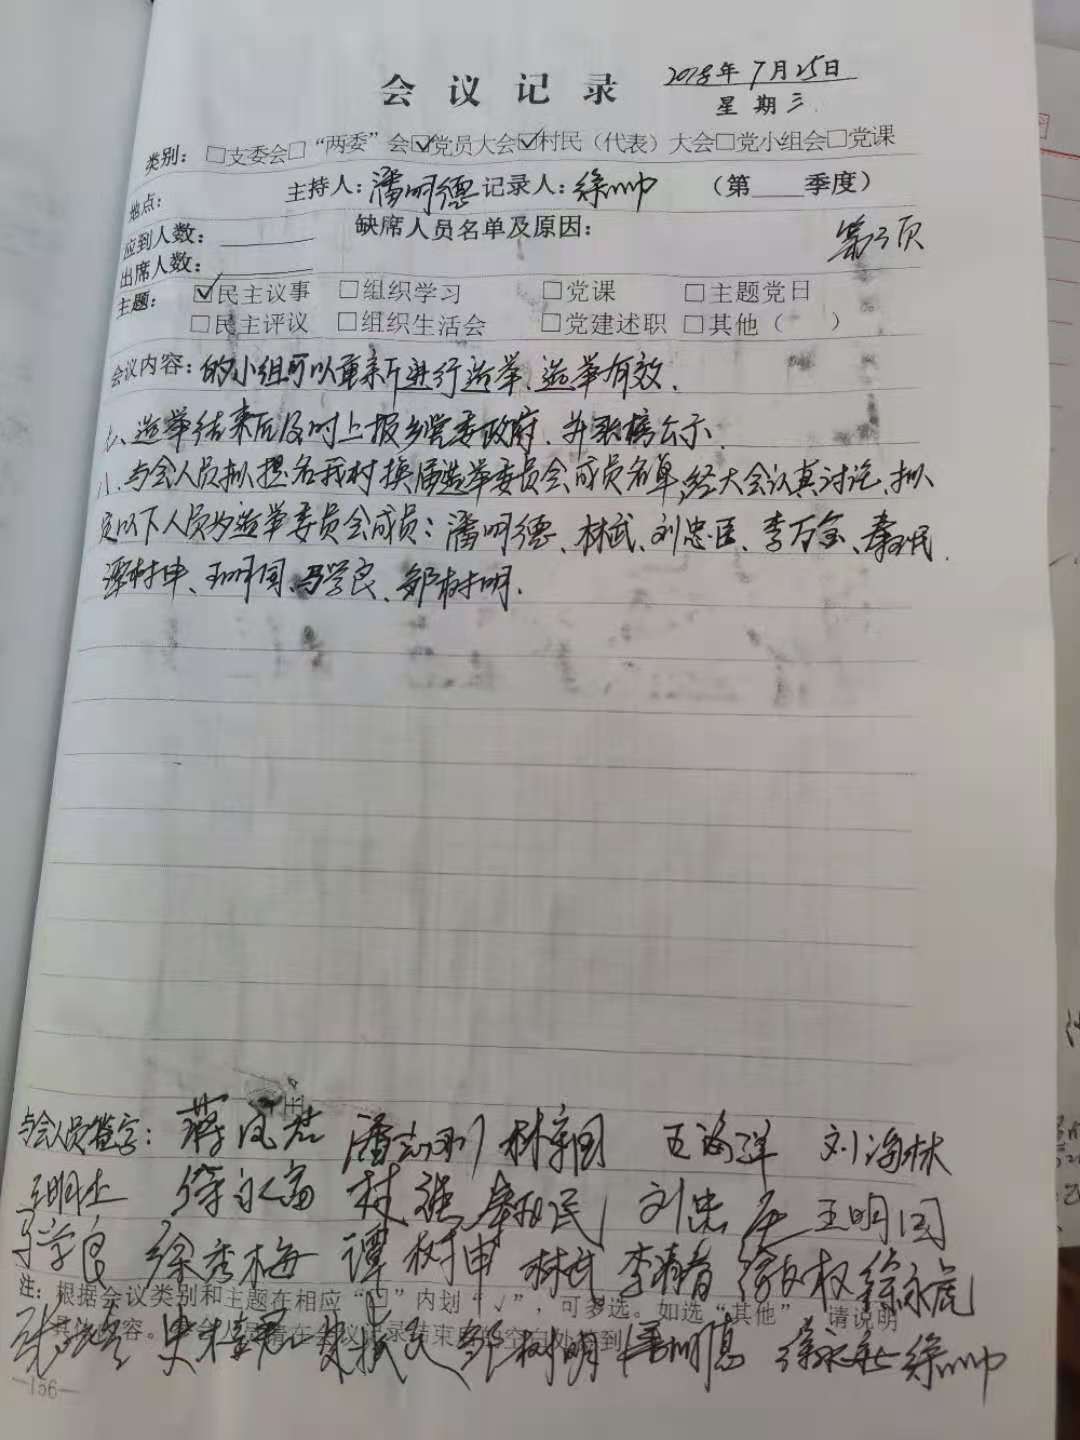 会议记录
2018年7月25日
星期三
类别：□支委会□“两委”会☑党员大会☑村民（代表）大会□党小组会□党课
地点： 主持人：潘明德 记录人：徐帅 （第 季度）
应到人数： 缺席人员名单及原因： 第3页
出席人数：
主题： ☑民主议事 □组织学习 □党课 □主题党日
□民主评议 □组织生活会 □党建述职 □其他（ ）
会议内容：的小组可以重新进行选举、选举有效。
七、选举结束后及时上报乡党委政府、并张榜公示。
八、与会人员拟提名我村换届选举委员会成员名单，经大会认真讨论、拟
定以下人员为选举委员会成员：潘明德、林武、刘忠臣、李万金、秦玉民、
谭树申、王明国、马学良、邹树明。
与会人员签字：蒋凤 潘 林 国 王海洋 刘海林
王明 徐永富 林强 民 刘忠臣 王明国
马学良 徐秀梅 谭树申 林武 李春 徐 权 徐永虎
注：根据会议类别和主题在相应“□”内划“√”，可多选。如选“其他” 请说明
内容。 在会议记录结束 空白处 到
史桂 邹树明 潘明德 徐永 徐帅
—156—